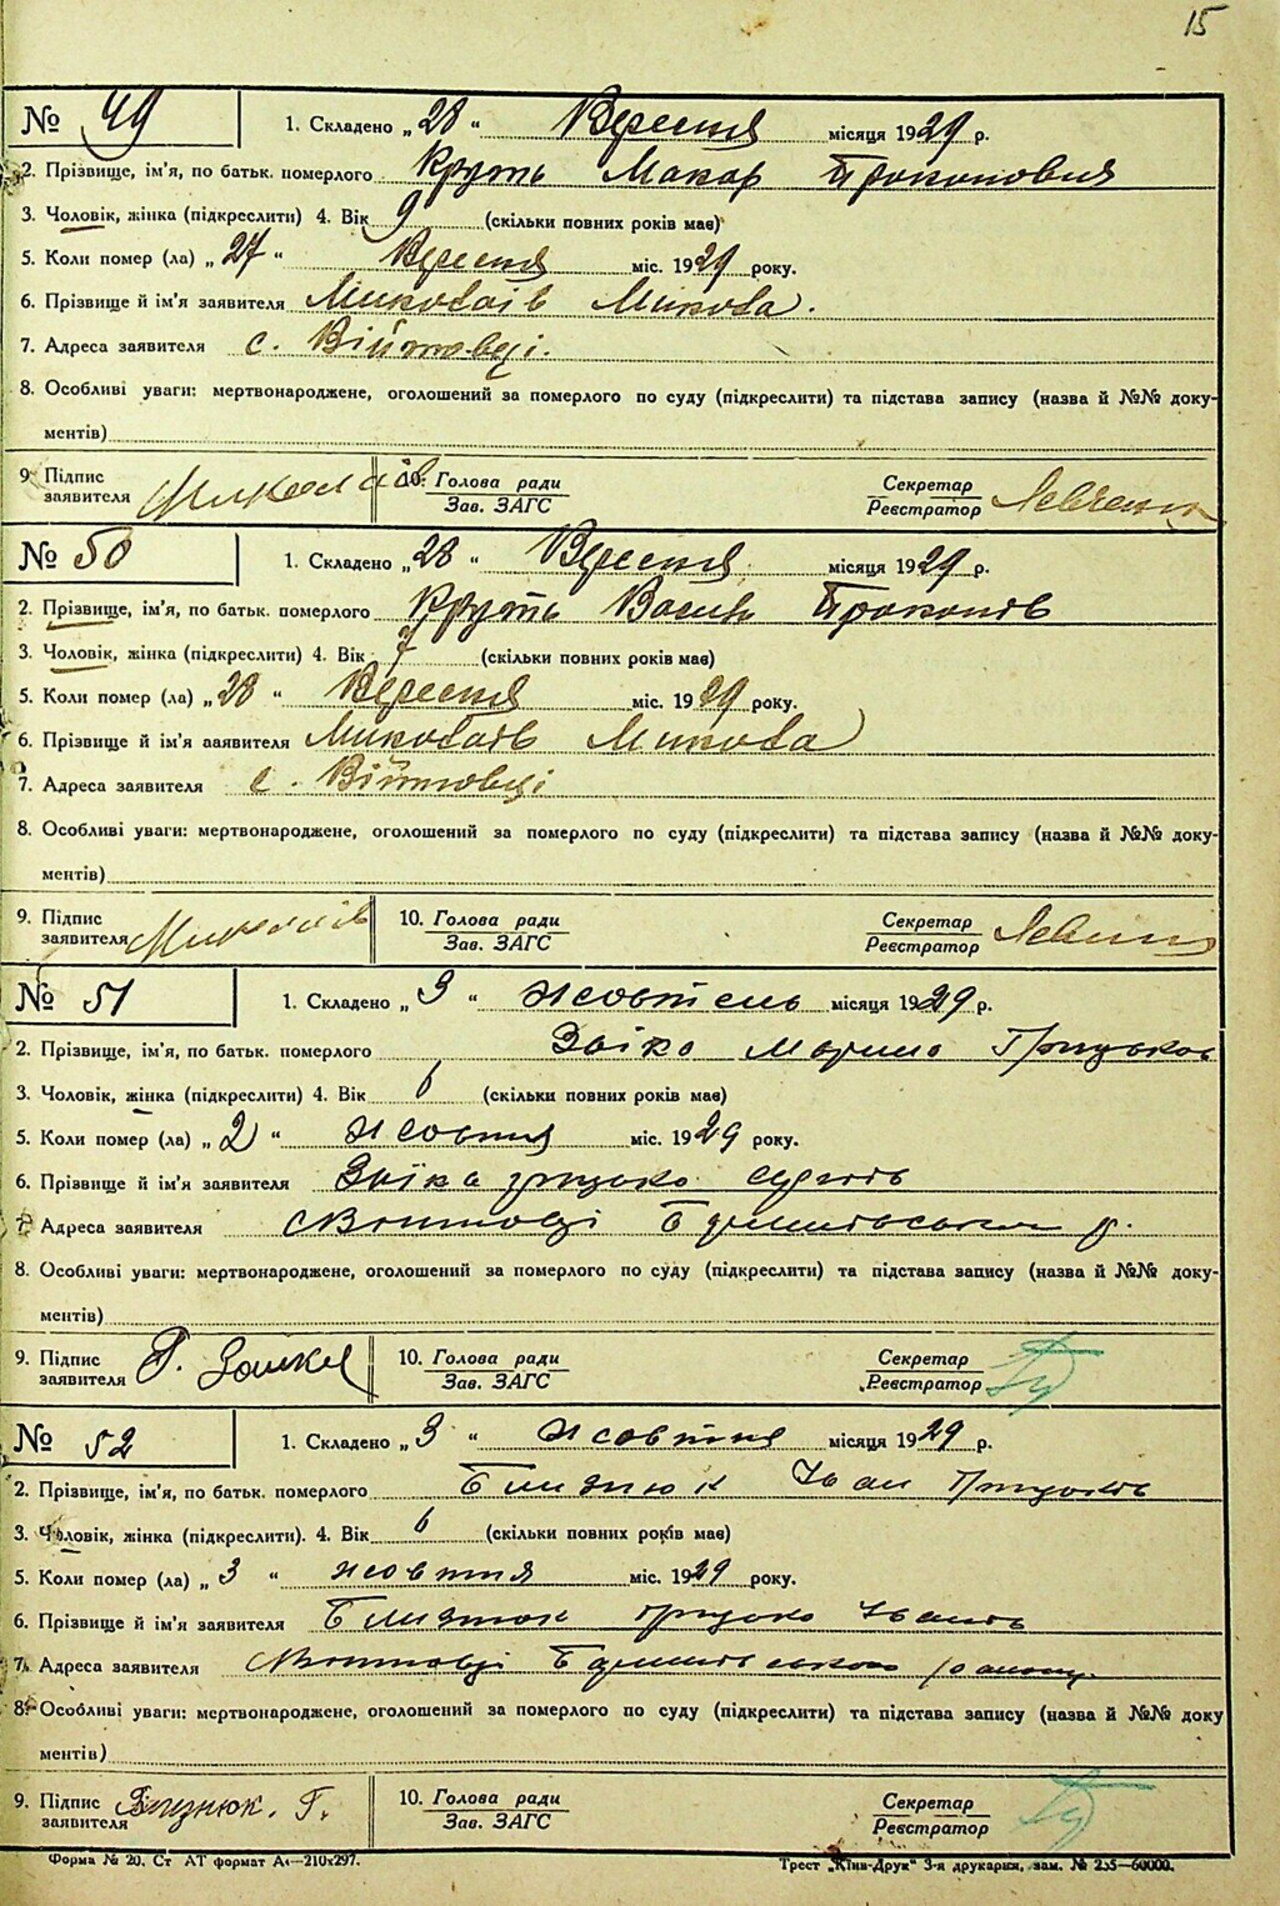 15
№ 49 1. Складено „28“ Вересня місяця 1929 р.
2. Прізвище, ім'я, по батьк. померлого Круть Макар Прокопович
3. Чоловік, жінка (підкреслити) 4. Вік 9 (скільки повних років має)
5. Коли помер (ла) „27“ Вересня міс. 1929 року.
6. Прізвище й ім'я заявителя Миколаїв Микола.
7. Адреса заявителя с. Війтовці.
8. Особливі уваги: мертвонароджене, оголошений за померлого по суду (підкреслити) та підстава запису (назва й №№ доку-
ментів)
9. Підпис заявителя Миколаїв 10. Голова ради Зав. ЗАГС Секретар Реєстратор
№ 50 1. Складено „28“ Вересня місяця 1929 р.
2. Прізвище, ім'я, по батьк. померлого Круть Василь Прокопів
3. Чоловік, жінка (підкреслити) 4. Вік 7 (скільки повних років має)
5. Коли помер (ла) „28“ Вересня міс. 1929 року.
6. Прізвище й ім'я заявителя Миколаїв Микола
7. Адреса заявителя с. Війтовці
8. Особливі уваги: мертвонароджене, оголошений за померлого по суду (підкреслити) та підстава запису (назва й №№ доку-
ментів)
9. Підпис заявителя Миколаїв 10. Голова ради Зав. ЗАГС Секретар Реєстратор
№ 51 1. Складено „3“ жовтень місяця 1929 р.
2. Прізвище, ім'я, по батьк. померлого Заіка Марина
3. Чоловік, жінка (підкреслити) 4. Вік 6 (скільки повних років має)
5. Коли помер (ла) „2“ жовтня міс. 1929 року.
6. Прізвище й ім'я заявителя Заїка грицько
7. Адреса заявителя р.
8. Особливі уваги: мертвонароджене, оголошений за померлого по суду (підкреслити) та підстава запису (назва й №№ доку-
ментів)
9. Підпис заявителя Г. 10. Голова ради Зав. ЗАГС Секретар Реєстратор
№ 52 1. Складено „3“ жовтня місяця 1929 р.
2. Прізвище, ім'я, по батьк. померлого Близнюк Іван Грицьків
3. Чоловік, жінка (підкреслити). 4. Вік 6 (скільки повних років має)
5. Коли помер (ла) „3“ жовтня міс. 1929 року.
6. Прізвище й ім'я заявителя Близнюк грицько Іванів
7. Адреса заявителя району
8. Особливі уваги: мертвонароджене, оголошений за померлого по суду (підкреслити) та підстава запису (назва й №№ доку
ментів)
9. Підпис заявителя Близнюк. Г. 10. Голова ради Зав. ЗАГС Секретар Реєстратор
Форма № 20. Ст АТ формат А4—210х297. Трест „Київ-Друк“ 3-я друкарня, зам. № 255—60000.